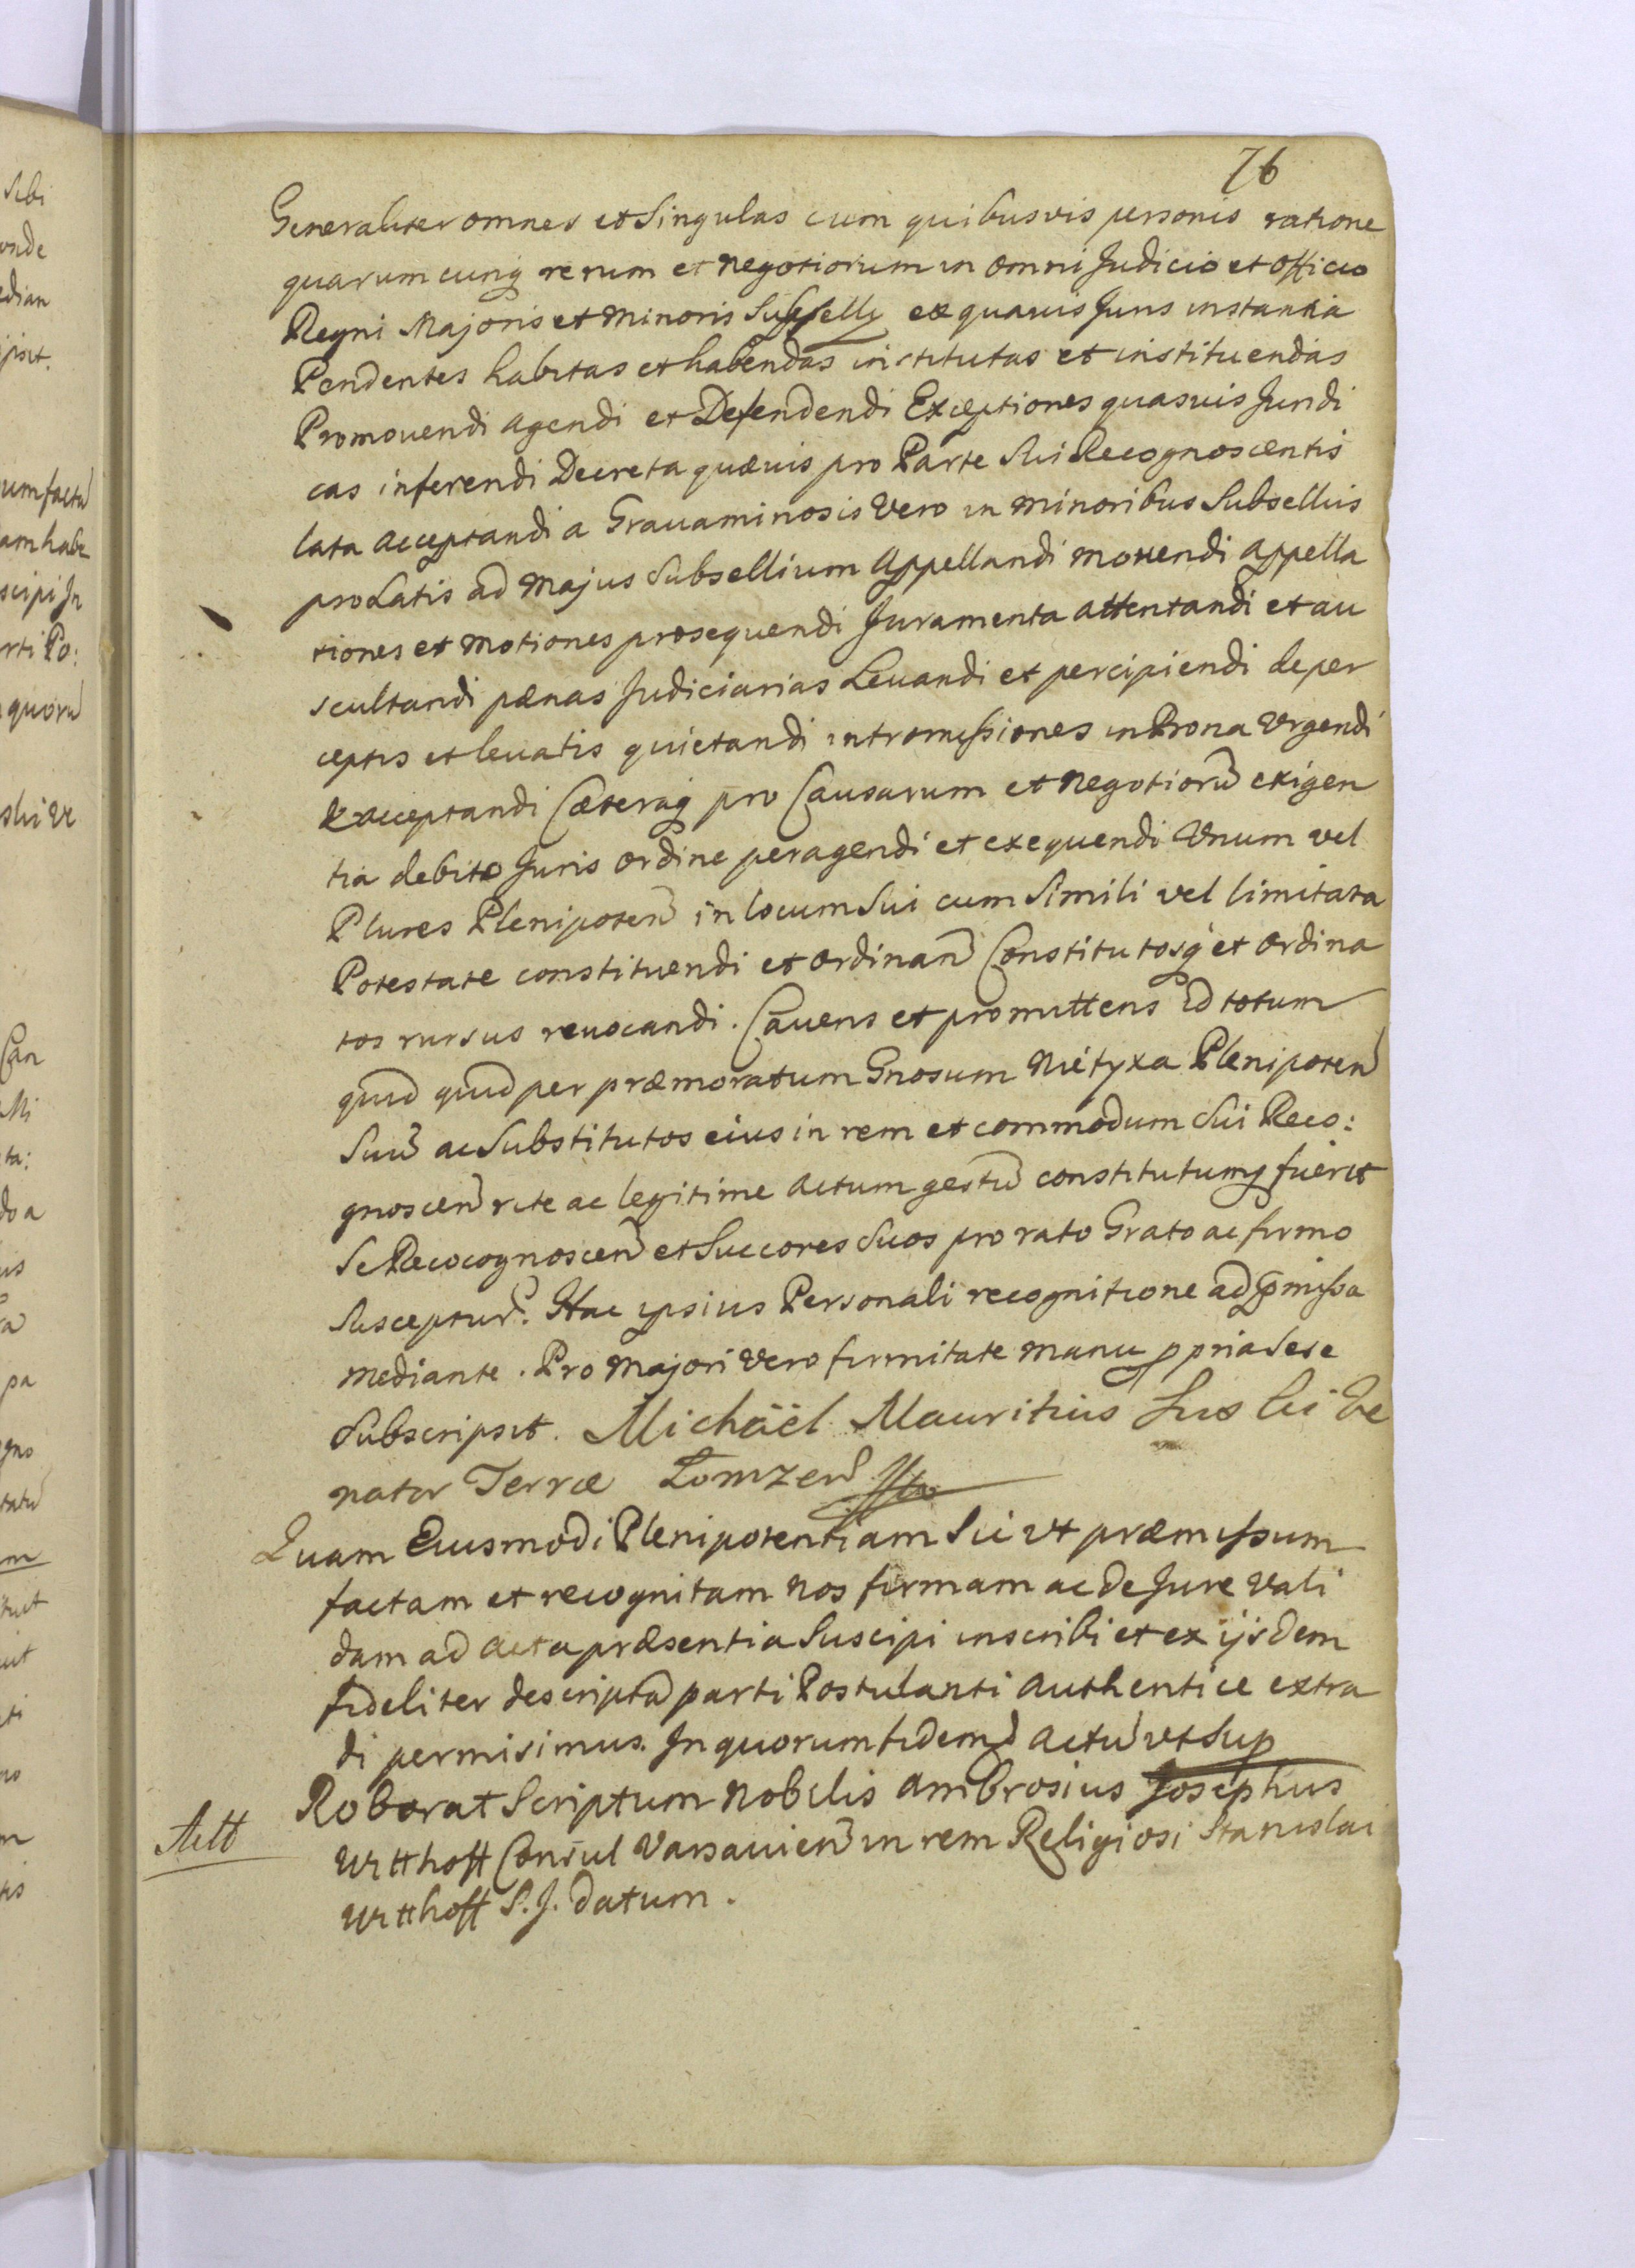 76
Generaliter omnes et Singulas cum quibusvis personis ratione
quarumcunq rerum et negotiorum in omni Judicio et officio
Regni Majoris et minoris Subselly ex quauis Juris instantia
Pendentes habitas et habendas institutas et instituendas
Promouendi agendi et Defendendi Exceptiones quasuis Juridi
cas inferendi Decreta quævis pro Parte Sui Recognoscentis
lata acceptandi a Grauaminosis Vero in minoribus Subsellijs
proLatis ad majus Subsellium Appellandi mouendi Appella
tiones et motiones prosequendi Juramenta attentandi et au
scultandi pænas Judiciarias Levandi et percipiendi de per
ceptis et levatis quietandi intromissiones in Bona Vrgendi
& acceptandi Cæteraq pro Causarum et negotioru exigen
tia debito Juris ordine peragendi et exequendi Vnum vel
Plures Plenipoten in locum Sui cum Simili vel limitata
Potestate constituendi et ordinan Constitutosq et ordina
tos rursus reuocandi. Cavens et promittens id totum
quid quid per præmoratum Gnosum Nietyxa Plenipoten
Suu ac Substitutos eius in rem et commodum Sui Reco:
gnoscen rite ac legitime actum gestu constitutumq fuerit
Se Recocognoscen et Succores Suos pro rato Grato ac firmo
Susceptur. Hac ipsius Personali recognitione ad pmissa
mediante. Pro majori Vero firmitate manu ppria Sese
Subscripsit. Michaël Mauritius Ve
nator Terræ Lomzen
Quam Eiusmodi Plenipotentiam Sic vt præmissum
factam et recognitam nos firmam ac de Jure Vali
dam ad acta præsentia Suscipi inscribi et ex ijsdem
fideliter descripta parti Postulanti authentice extra
di permisimus. In quorum fidem actu vt Sup
Roborat Scriptum nobilis Ambrosius Josephus
Witthoff Consul Varsauien in rem Religiosi Stanislai
Witthoff S.J. datum.